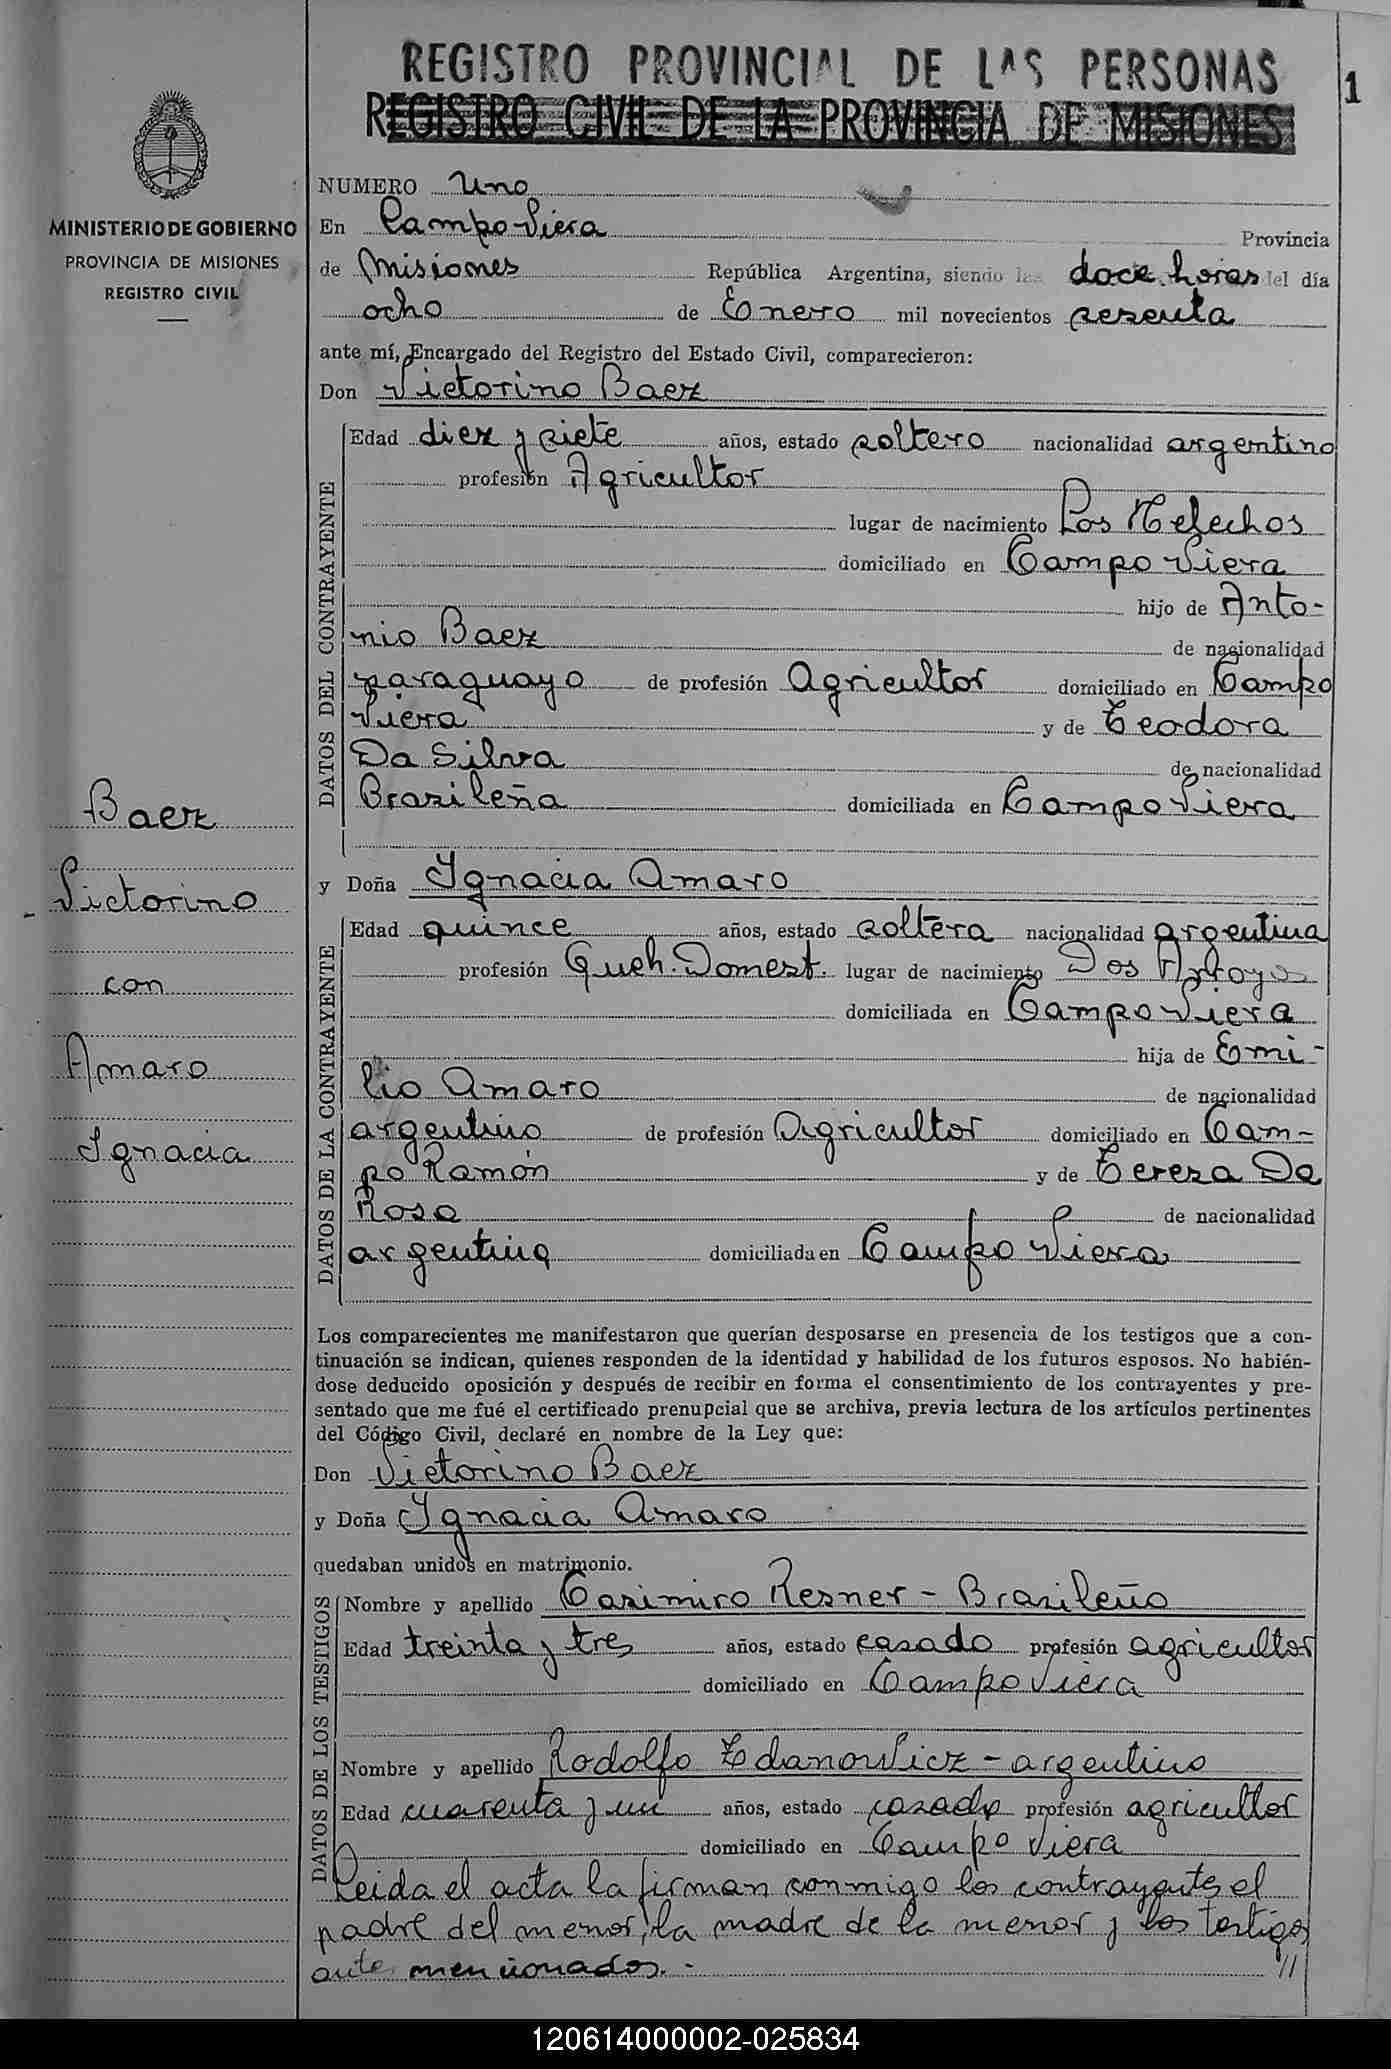 REGISTRO PROVINCIAL DE LAS PERSONAS
1
REGISTRO CIVIL DE LA PROVINCIA DE MISIONES
MINISTERIO DE GOBIERNO
PROVINCIA DE MISIONES
REGISTRO CIVIL
NUMERO Uno
En Campo Viera Provincia
de Misiones República Argentina, siendo las doce horas del día
ocho de Enero mil novecientos sesenta
ante mí, Encargado del Registro del Estado Civil, comparecieron:
Don Victorino Baez
DATOS DEL CONTRAYENTE
Edad diez y siete años, estado soltero nacionalidad argentino
profesión Agricultor
lugar de nacimiento Los Helechos
domiciliado en Campo Viera
hijo de Anto-
nio Baez de nacionalidad
paraguayo de profesión Agricultor domiciliado en Campo
Viera y de Teodora
Da Silva de nacionalidad
Brasileña domiciliada en Campo Viera
Baez
Victorino
con
Amaro
Ignacia
y Doña Ignacia Amaro
DATOS DE LA CONTRAYENTE
Edad quince años, estado soltera nacionalidad argentina
profesión Queh. Domest. lugar de nacimiento Dos Arroyos
domiciliada en Campo Viera
hija de Emi-
lio Amaro de nacionalidad
argentino de profesión Agricultor domiciliado en Cam-
po Ramón y de Tereza Da
Rosa de nacionalidad
argentina domiciliada en Campo Viera
Los comparecientes me manifestaron que querían desposarse en presencia de los testigos que a con-
tinuación se indican, quienes responden de la identidad y habilidad de los futuros esposos. No habién-
dose deducido oposición y después de recibir en forma el consentimiento de los contrayentes y pre-
sentado que me fué el certificado prenupcial que se archiva, previa lectura de los artículos pertinentes
del Código Civil, declaré en nombre de la Ley que:
Don Victorino Baez
y Doña Ignacia Amaro
quedaban unidos en matrimonio.
DATOS DE LOS TESTIGOS
Nombre y apellido Casimiro Resner - Brasileño
Edad treinta y tres años, estado casado profesión agricultor
domiciliado en Campo Viera
Nombre y apellido Rodolfo Zdanovicz - argentino
Edad cuarenta y un años, estado casado profesión agricultor
domiciliado en Campo Viera
Leida el acta la firman conmigo los contrayentes el
padre del menor, la madre de la menor y los testigos
ante mencionados. - //
120614000002-025834